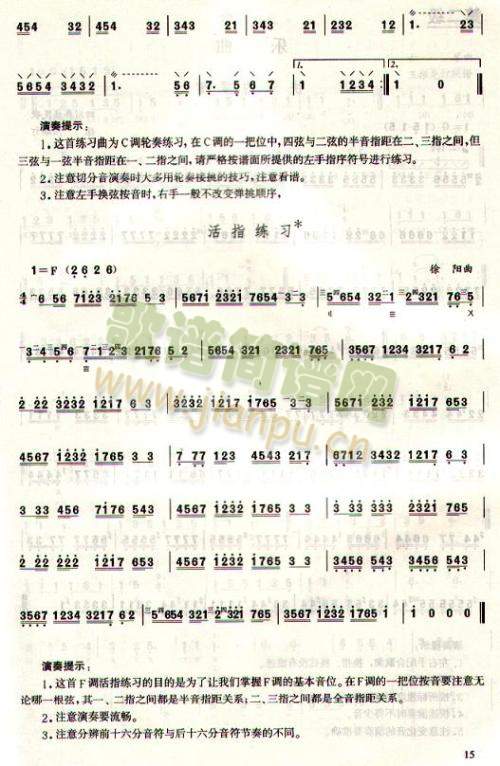 454 32 454 32 343 21 343 21 232 12 1. 23
5654 3432 1. 56 7. 5 67 1 1. 1 1234 2. 1 0 0
演奏提示：
1.这首练习曲为C调轮奏练习，在C调的一把位中，四弦与二弦的半音指距在二、三指之间，但
三弦与一弦半音指距在一、二指之间，请严格按谱面所提供的左手指序符号进行练习。
2.注意切分音演奏时大多用轮奏接挑的技巧，注意看谱。
3.注意左手换弦按音时，右手一般不改变弹挑顺序，
活指练习*
1=F（2626） 徐 阳曲
6 56 7123 2176 5 3 5671 2321 7654 3 3 5 654 32 1 2 321 76 5
3 4 5 6 7 1 2 3 2176 5 2 5654 321 2321 765 3567 1234 3217 6 2
2 2 3232 1217 6 3 2 22 3232 1217 653 5654 3212 2321 765
4567 1232 1765 3 3 7 77 123 4543 3 3 6712 3432 1217 653
3 33 456 7176 543 4567 1232 1765 543 3567 1232 2321 765
2 22 222 1217 653 4567 1232 1217 653 3456 543 3456 543
3567 1234 3217 62 5 654 321 2 321 765 3567 1234 1765 1 1 1 0 0 0
歌谱简谱网
www.jianpu.cn
演奏提示：
1.这首F调活指练习的目的是为了让我们掌握F调的基本音位。在F调的一把位按音要注意无
论哪一根弦，其一、二指之间都是半音指距关系；二、三指之间都是全音指距关系。
2.注意演奏要流畅。
3.注意分辨前十六分音符与后十六分音符节奏的不同。
15